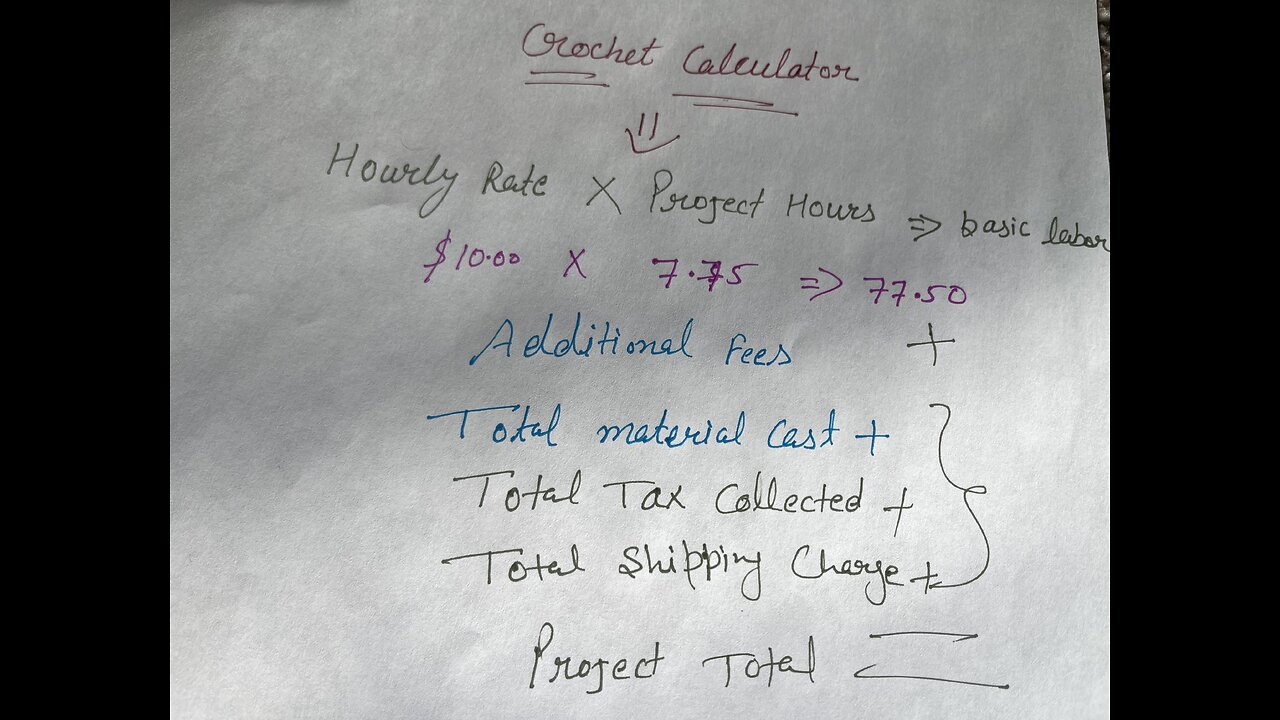 Crochet Calculator
Hourly Rate X Project Hours => basic labor
$10.00 X 7.75 => 77.50
Additional Fees +
Total material cast +
Total Tax Collected +
Total Shipping Charge +
Project Total =